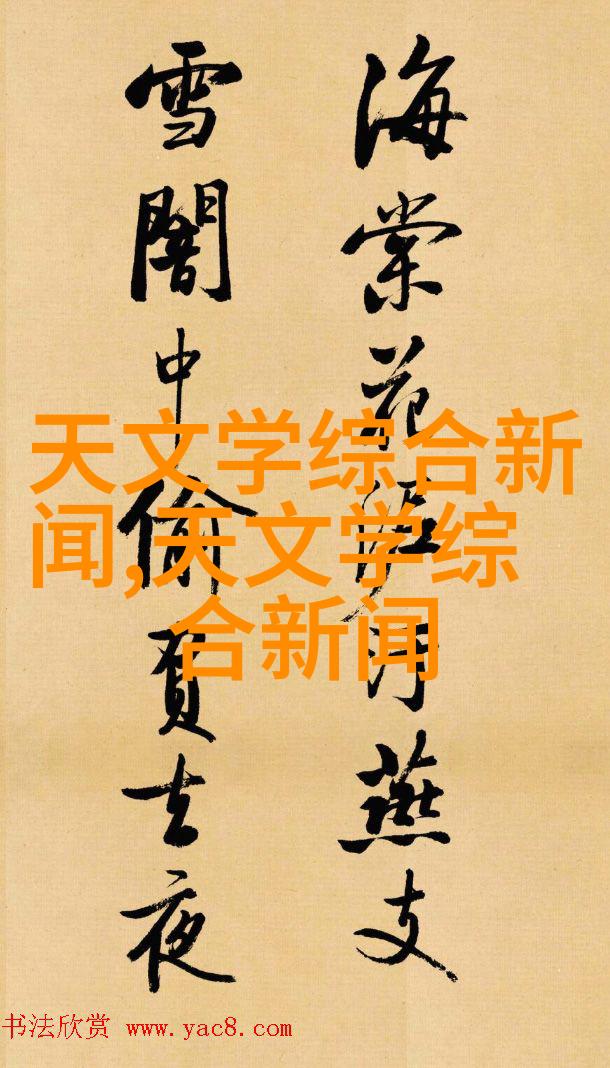 海棠花泥汙燕支
雪闇中偷負去夜
天文学综合新
闻,天文学综
合新闻
书法欣赏 www.yac8.com